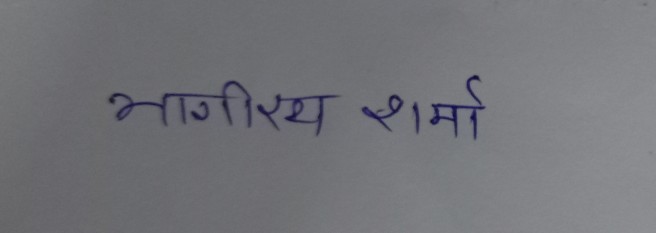 भागीरथ शर्मा